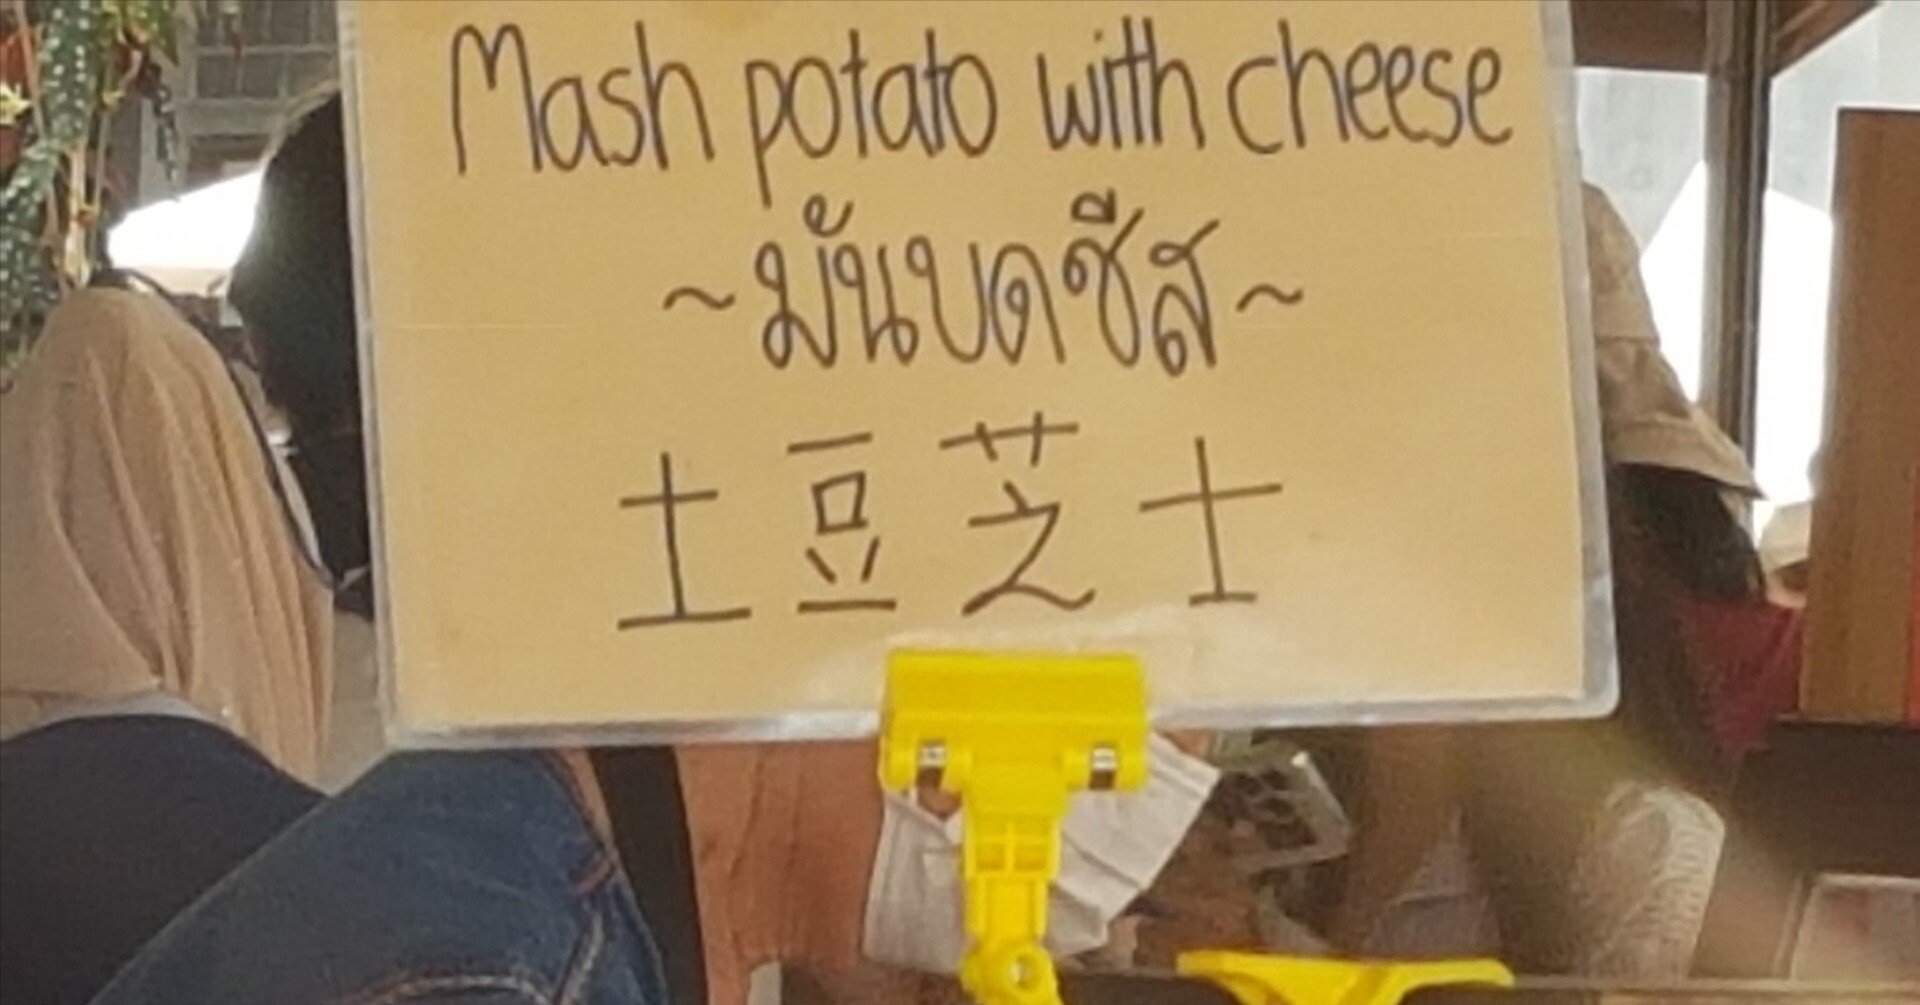 Mash potato with cheese
~มันบดชีส~
土豆芝士